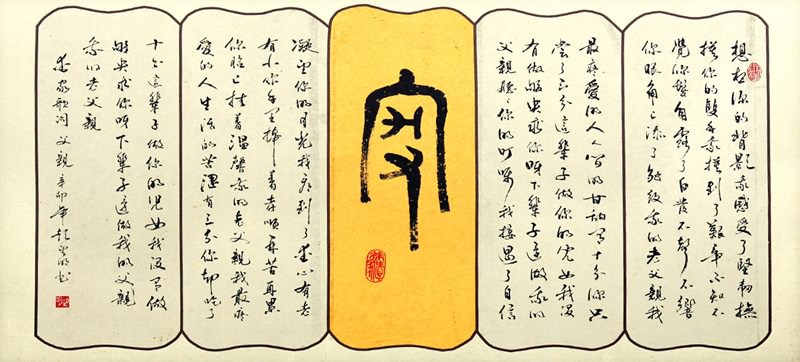 想想你的背影我感受了坚韧抚
摸你的双手我摸到了艰辛不知不
觉你鬓角露了白发不声不响
你眼角上添了皱纹我的老父亲我
最疼爱的人人间的甘甜有十分你只
尝了三分这辈子做你的儿女我没
有做够央求你呀下辈子还做我的
父亲听听你的叮嘱我接过了自信
凝望你的目光我看到了爱心有老
有小你手里捧着孝顺再苦再累
你脸上挂着温馨我的老父亲我最疼
爱的人生活的苦涩有三分你却吃了
十分这辈子做你的儿女我没有做
够央求你呀下辈子还做我的父亲
我的老父亲
歌词父亲辛卯年书